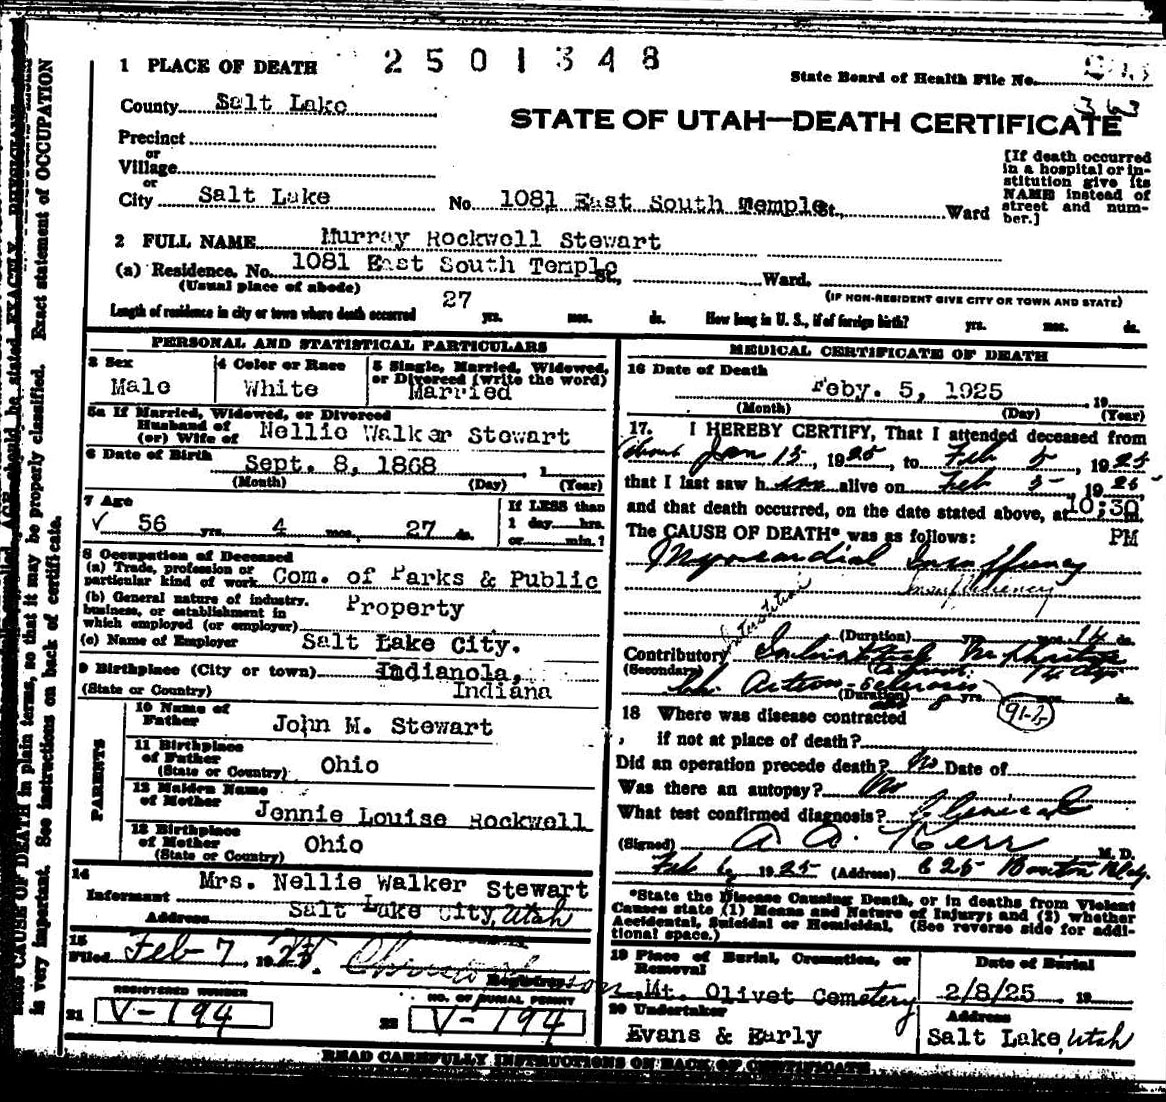 1 PLACE OF DEATH
2501348
State Board of Health File No.
363
County Salt Lake
STATE OF UTAH—DEATH CERTIFICATE
Precinct
or
Village
or
City Salt Lake No. 1081 East South Temple St., Ward
[If death occurred
in a hospital or in-
stitution give its
NAME instead of
street and num-
ber.]
2 FULL NAME Murray Rockwell Stewart
(a) Residence. No. 1081 East South Temple St., Ward.
(Usual place of abode)
(IF NON-RESIDENT GIVE CITY OR TOWN AND STATE)
Length of residence in city or town where death occurred 27 yrs. mos. ds. How long in U. S., if of foreign birth? yrs. mos. ds.
PERSONAL AND STATISTICAL PARTICULARS
3 Sex
Male
4 Color or Race
White
5 Single, Married, Widowed,
or Divorced (write the word)
Married
5a If Married, Widowed, or Divorced
Husband of
(or) Wife of Nellie Walker Stewart
6 Date of Birth Sept. 8, 1868, 1
(Month) (Day) (Year)
7 Age
✓ 56 yrs. 4 mos. 27 ds.
If LESS than
1 day hrs.
or min.?
8 Occupation of Deceased
(a) Trade, profession or
particular kind of work Com. of Parks & Public
(b) General nature of industry,
business, or establishment in
which employed (or employer) Property
(c) Name of Employer Salt Lake City.
9 Birthplace (City or town) Indianola,
(State or Country) Indiana
PARENTS
10 Name of
Father John M. Stewart
11 Birthplace
of Father
(State or Country) Ohio
12 Maiden Name
of Mother Jennie Louise Rockwell
13 Birthplace
of Mother
(State or Country) Ohio
14
Informant Mrs. Nellie Walker Stewart
Address Salt Lake City, Utah
15
Filed Feb 7, 1925.
Registrar
REGISTERED NUMBER
21 V-194
NO. OF BURIAL PERMIT
22 V-194
MEDICAL CERTIFICATE OF DEATH
16 Date of Death
Feby. 5, 1925 19
(Month) (Day) (Year)
17. I HEREBY CERTIFY, That I attended deceased from
about Jan 15, 1925, to Feb 5, 1925
that I last saw him alive on Feb 5, 1925,
and that death occurred, on the date stated above, at 10:30 m.
PM
The CAUSE OF DEATH* was as follows:
Myocardial Insufficiency
Insufficiency
(Duration) yrs. mos. 14 ds.
Interstitial
Contributory Interstitial Nephritis
(Secondary)
Arterio-Sclerosis
(Duration) yrs. mos. ds.
18 Where was disease contracted
if not at place of death?
Did an operation precede death? No Date of
Was there an autopsy? No
What test confirmed diagnosis? Clinical
(Signed) A. A. Kerr M. D.
Feb 6, 1925 (Address) 625 Boston Bldg.
*State the Disease Causing Death, or in deaths from Violent
Causes state (1) Means and Nature of Injury; and (2) whether
Accidental, Suicidal or Homicidal. (See reverse side for addi-
tional space.)
19 Place of Burial, Cremation, or
Removal
Mt. Olivet Cemetery
Date of Burial
2/8/25 19
20 Undertaker
Evans & Early
Address
Salt Lake, Utah
READ CAREFULLY INSTRUCTIONS ON BACK OF CERTIFICATE
AGE should be stated EXACTLY. PHYSICIANS
CAUSE OF DEATH in plain terms, so that it may be properly classified. Exact statement of OCCUPATION
is very important. See instructions on back of certificate.